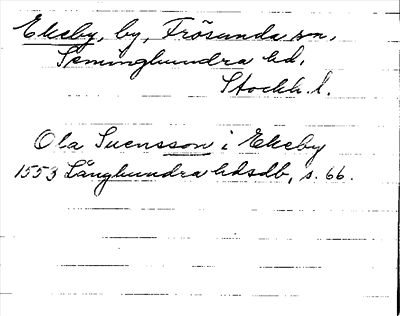 Ekeby, by, Frösunda sn,
Seminghundra hd,
Stockh. l.
Ola Suensson i Ekeby
1553 Långhundra hdsdb, s. 66.